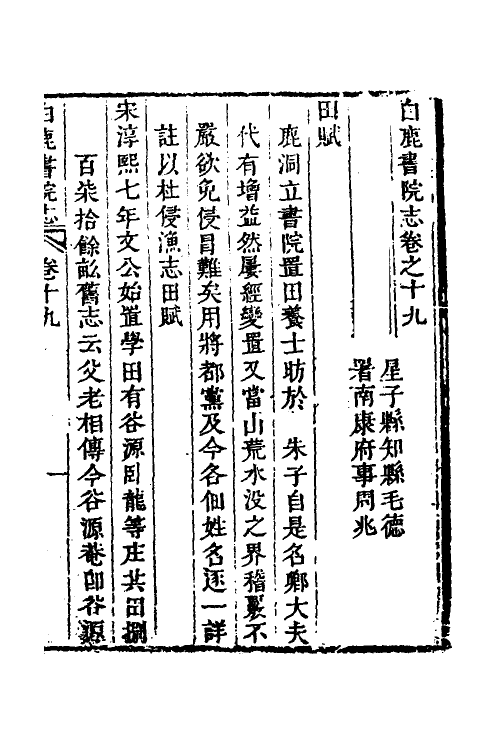 白鹿書院志卷之十九
星子縣知縣毛德
署南康府事周兆
田賦
鹿洞立書院置田養士昉於 朱子自是名卿大夫
代有增益然屢經變置又當山荒水没之界稽覈不
嚴欲免侵冒難矣用將都黨及今各佃姓名逐一詳
註以杜侵漁志田賦
宋淳熙七年文公始置學田有谷源臥龍等庄共田捌
百柒拾餘畝舊志云父老相傳今谷源菴卽谷源
白鹿書院志 卷十九 一